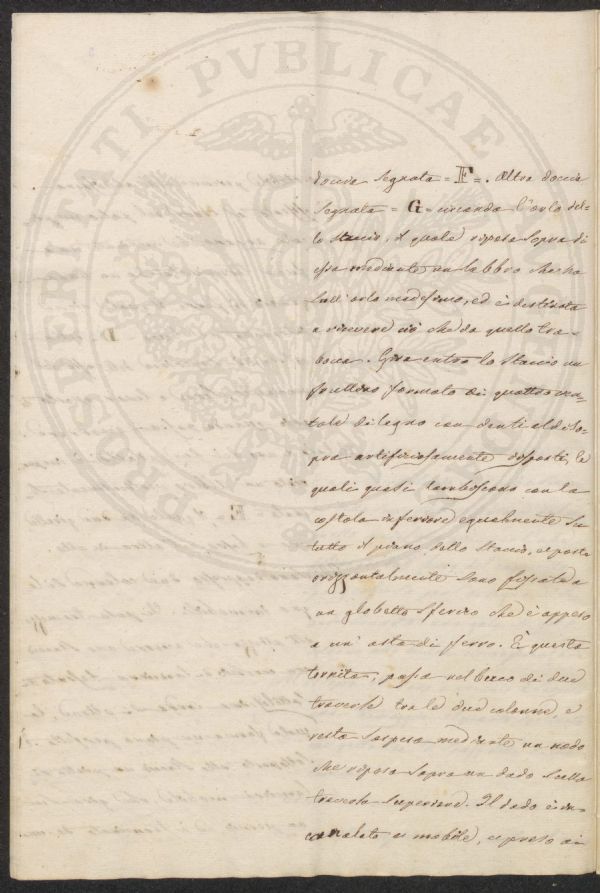 doccia segnata = F = . Altra doccia
segnata = G = circonda l'orlo del-
lo staccio, il quale riposa sopra di
essa mediante un labbro che ha
sull'orlo medesimo, ed è destinata
a ricevere ciò che da quello tra-
bocca. Gira entro lo staccio un
frullino formato di quattro
di legno con denti al diso-
pra artifiziosamente disposti, le
quali quasi lambiscono con la
costola inferiore egualmente su
tutto il piano dello staccio, e poste
orizzontalmente sono fissate a
un globetto sferico che è appeso
a un' asta di ferro. È questa
tornita; passa nel buco di due
traverse tra le due colonne, e
resta sospesa mediante un nodo
che riposa sopra un dado sulla
traversa superiore. Il dado è in-
canalato e mobile, e preso
PROSPERITATI PVBLICAE